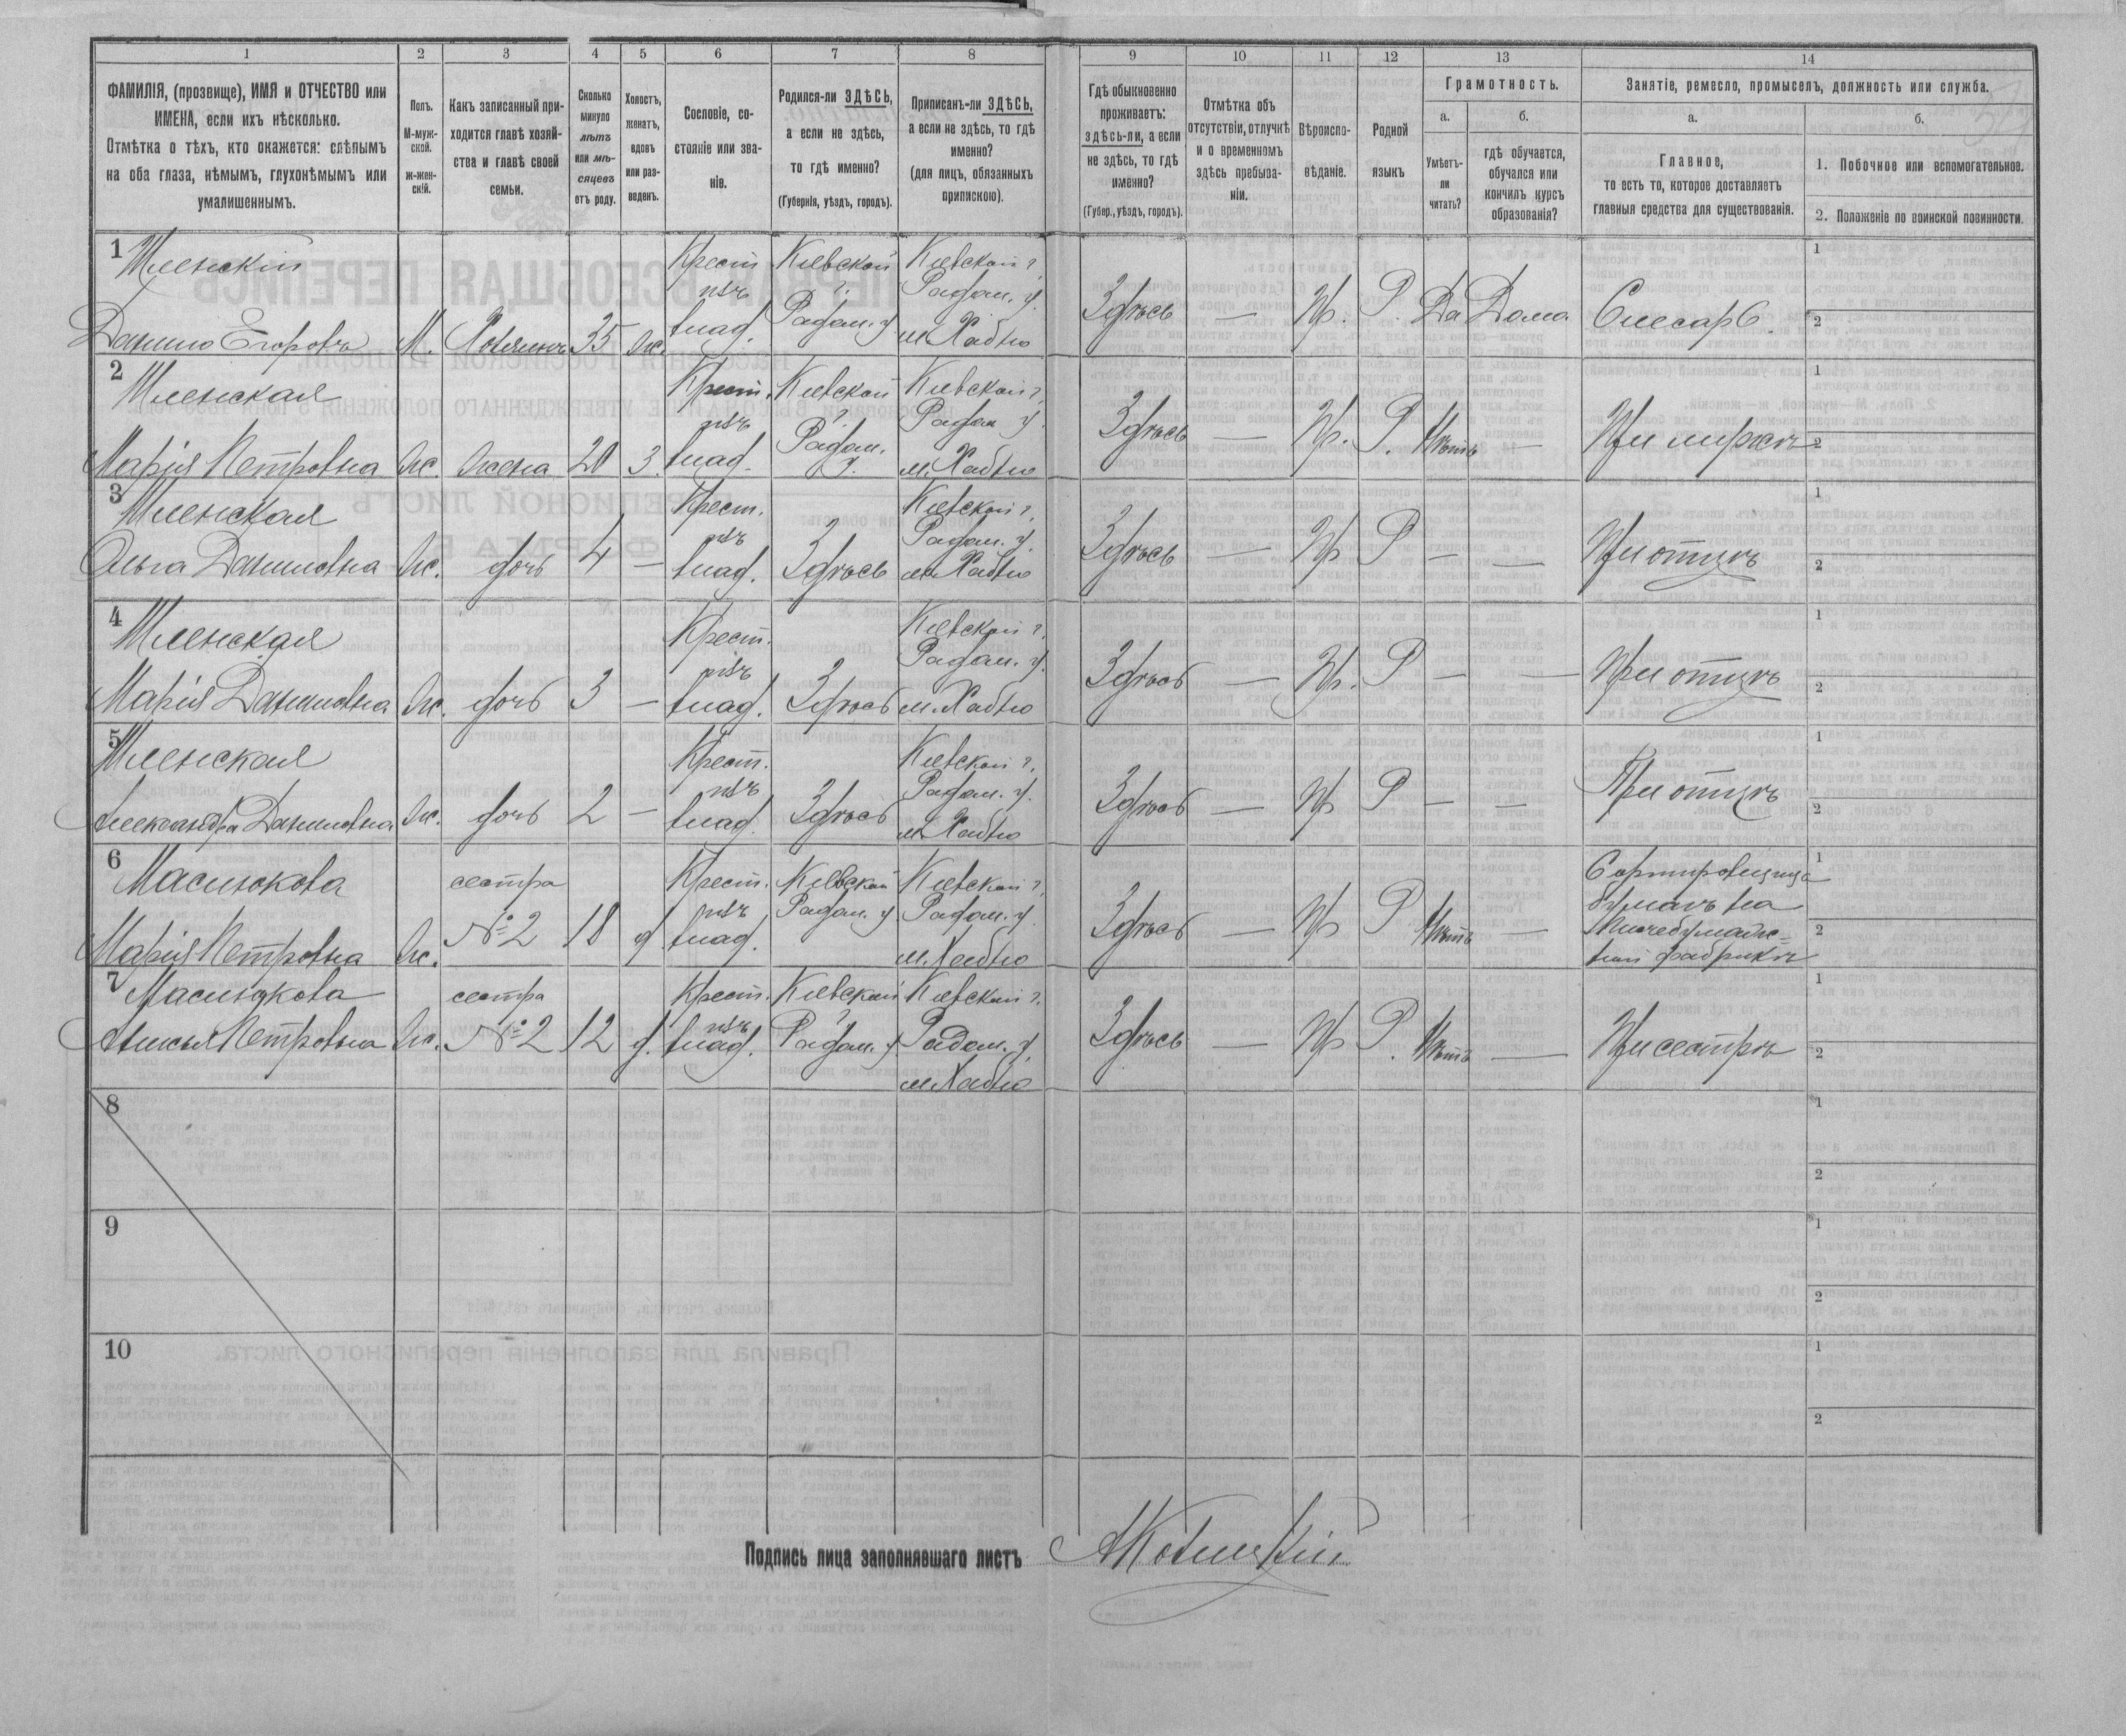 1 2 3 4 5 6 7 8 9 10 11 12 13 14
ФАМИЛІЯ, (прозвище), ИМЯ и ОТЧЕСТВО или
ИМЕНА, если ихъ нѣсколько.
Отмѣтка о тѣхъ, кто окажется: слѣпымъ
на оба глаза, нѣмымъ, глухонѣмымъ или
умалишеннымъ.
Полъ.
М-муж-
ской.
ж-жен-
скій.
Какъ записанный при-
ходится главѣ хозяй-
ства и главѣ своей
семьи.
Сколько
минуло
лѣтъ
или мѣ-
сяцевъ
отъ роду.
Холостъ,
женатъ,
вдовъ
или раз-
веденъ.
Сословіе, со-
стояніе или зва-
ніе.
Родился-ли ЗДѢСЬ,
а если не здѣсь,
то гдѣ именно?
(Губернія, уѣздъ, городъ).
Приписанъ-ли ЗДѢСЬ,
а если не здѣсь, то гдѣ
именно?
(для лицъ, обязанныхъ
припискою).
Гдѣ обыкновенно
проживаетъ:
здѣсь-ли, а если
не здѣсь, то гдѣ
именно?
(Губер., уѣздъ, городъ).
Отмѣтка объ
отсутствіи, отлучкѣ
и о временномъ
здѣсь пребыва-
ніи.
Вѣроиспо-
вѣданіе.
Родной
языкъ
Грамотность.
а.
Умѣетъ-
ли
читать?
б.
гдѣ обучается,
обучался или
кончилъ курсъ
образованія?
Занятіе, ремесло, промыселъ, должность или служба.
а.
Главное,
то есть то, которое доставляетъ
главныя средства для существованія.
б.
1. Побочное или вспомогательное.
2. Положеніе по воинской повинности.
1
Данило Егоровъ М. Хозяинъ 35 ж.
Крест.
изъ
влад.
Кіевской
г.
Радом. у
Кіевской г.
Радом. у.
м. Хабно
Здѣсь — Пр. Р. Да Дома Слесарь.
1
2
2
Марія Петровна Ж. Жена 20 З.
Крест.
изъ
влад.
Кіевской
г.
Радом.
у.
Кіевской г.
Радом у.
м. Хабно
Здѣсь — Пр. Р. Нѣтъ — При мужѣ
1
2
3
Ольга Даниловна Ж. дочь 4 —
Крест.
изъ
влад.
Здѣсь
Кіевской г.
Радом. у.
м. Хабно
Здѣсь — Пр Р — — При отцѣ
1
2
4
Марія Даниловна Ж. дочь 3 —
Крест.
изъ
влад.
Здѣсь
Кіевской г.
Радом. у.
м. Хабно
Здѣсь — Пр. Р — — При отцѣ
1
2
5
Александра Даниловна Ж. дочь 2 —
Крест.
изъ
влад.
Здѣсь
Кіевской г.
Радом. у.
м. Хабно
Здѣсь — Пр Р — — При отцѣ
1
2
6
Масиюкова
Марія Петровна Ж.
сестра
№ 2 18 д
Крест.
изъ
влад.
Кіевской
Радом. у
Кіевской г.
Радом. у
м. Хабно
Здѣсь — Пр Р Нѣтъ —
Сортировщица
бумагъ на
Писчебумаж=
ной фабрикѣ
1
2
7
Масиюкова
Петровна Ж.
сестра
№ 2 12 д.
Крест.
изъ
влад.
Кіевской
г.
Радом. у
Кіевской г.
Радом. у.
м. Хабно
Здѣсь — Пр Р. Нѣтъ — При сестрѣ
1
2
8
1
2
9
1
2
10
1
2
Подпись лица заполнявшаго листъ